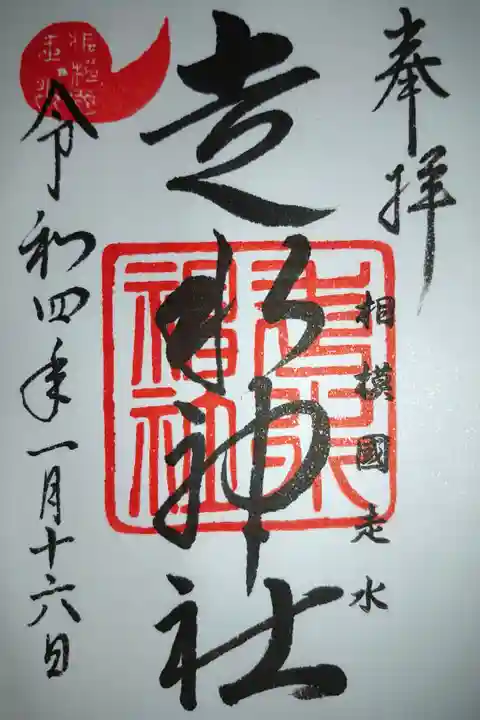 奉拝
相模國走水
走水神社
走水神社
令和四年一月十六日